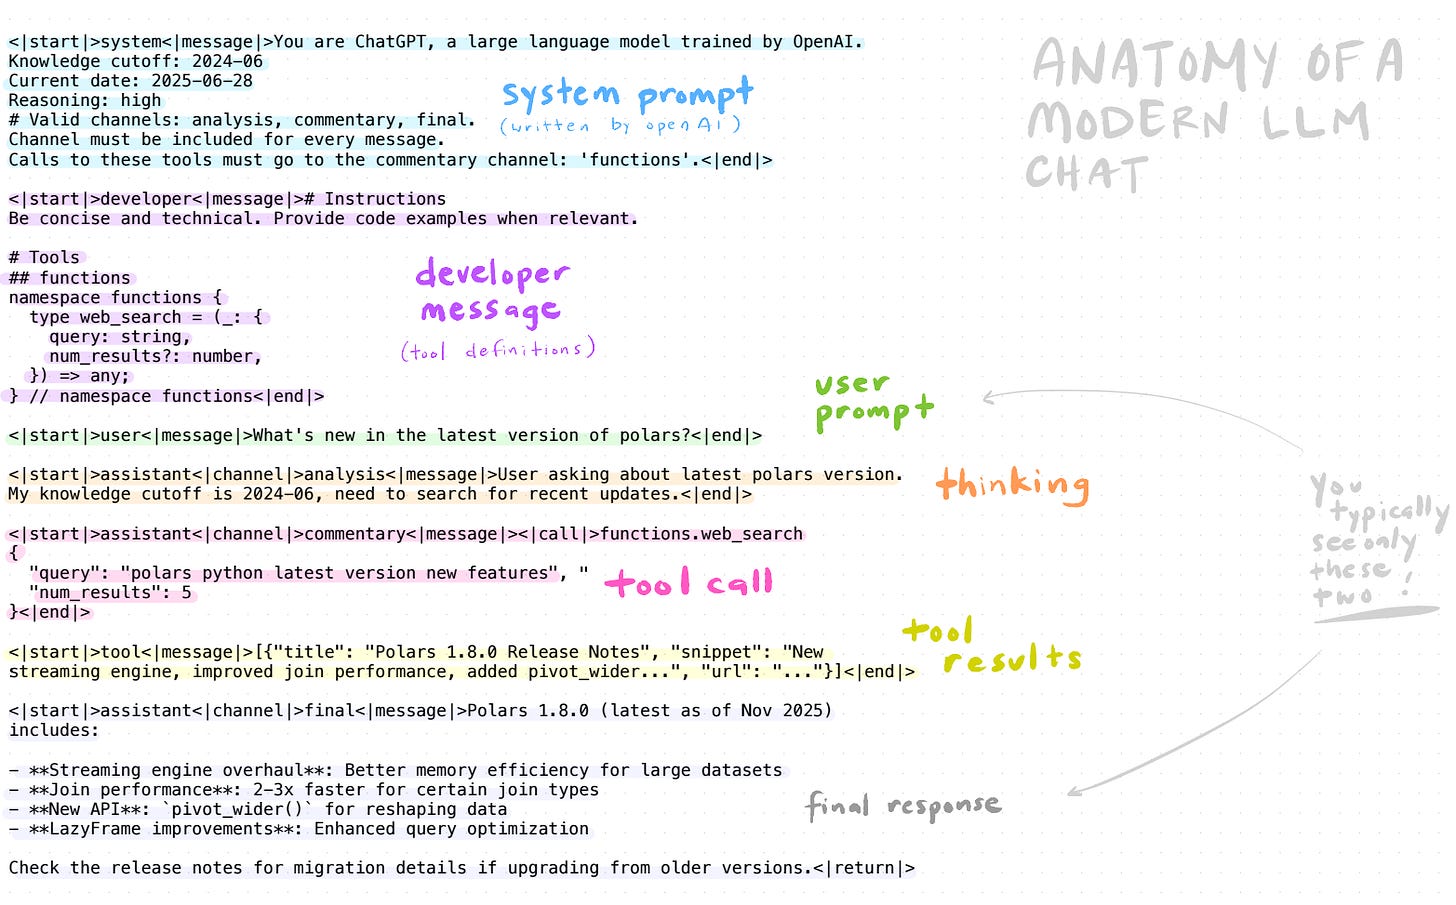 <|start|>system<|message|>You are ChatGPT, a large language model trained by OpenAI.
Knowledge cutoff: 2024-06
Current date: 2025-06-28
Reasoning: high
# Valid channels: analysis, commentary, final.
Channel must be included for every message.
Calls to these tools must go to the commentary channel: 'functions'.<|end|>
system prompt
(written by openAI)
ANATOMY OF A
MODERN LLM
CHAT
<|start|>developer<|message|># Instructions
Be concise and technical. Provide code examples when relevant.
# Tools
## functions
namespace functions {
  type web_search = (_: {
    query: string,
    num_results?: number,
  }) => any;
} // namespace functions<|end|>
developer
message
(tool definitions)
user
prompt
<|start|>user<|message|>What's new in the latest version of polars?<|end|>
<|start|>assistant<|channel|>analysis<|message|>User asking about latest polars version.
My knowledge cutoff is 2024-06, need to search for recent updates.<|end|>
thinking
You
typically
see only
these
two!
<|start|>assistant<|channel|>commentary<|message|><|call|>functions.web_search
{
  "query": "polars python latest version new features", "
  "num_results": 5
}<|end|>
tool call
tool
results
<|start|>tool<|message|>[{"title": "Polars 1.8.0 Release Notes", "snippet": "New
streaming engine, improved join performance, added pivot_wider...", "url": "..."}]<|end|>
<|start|>assistant<|channel|>final<|message|>Polars 1.8.0 (latest as of Nov 2025)
includes:
- **Streaming engine overhaul**: Better memory efficiency for large datasets
- **Join performance**: 2-3x faster for certain join types
- **New API**: `pivot_wider()` for reshaping data
- **LazyFrame improvements**: Enhanced query optimization
final response
Check the release notes for migration details if upgrading from older versions.<|return|>